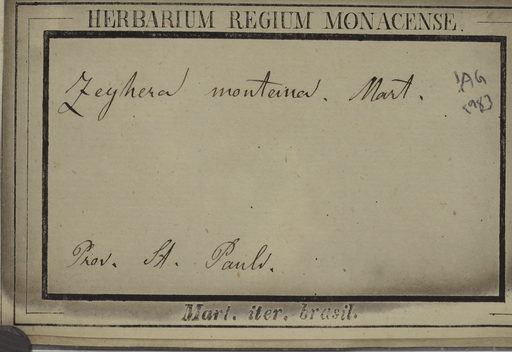 HERBARIUM REGIUM MONACENSE.
Zeyhera montana. Mart.
!AG
1983
Prov. St. Pauli.
Mart. iter. brasil.